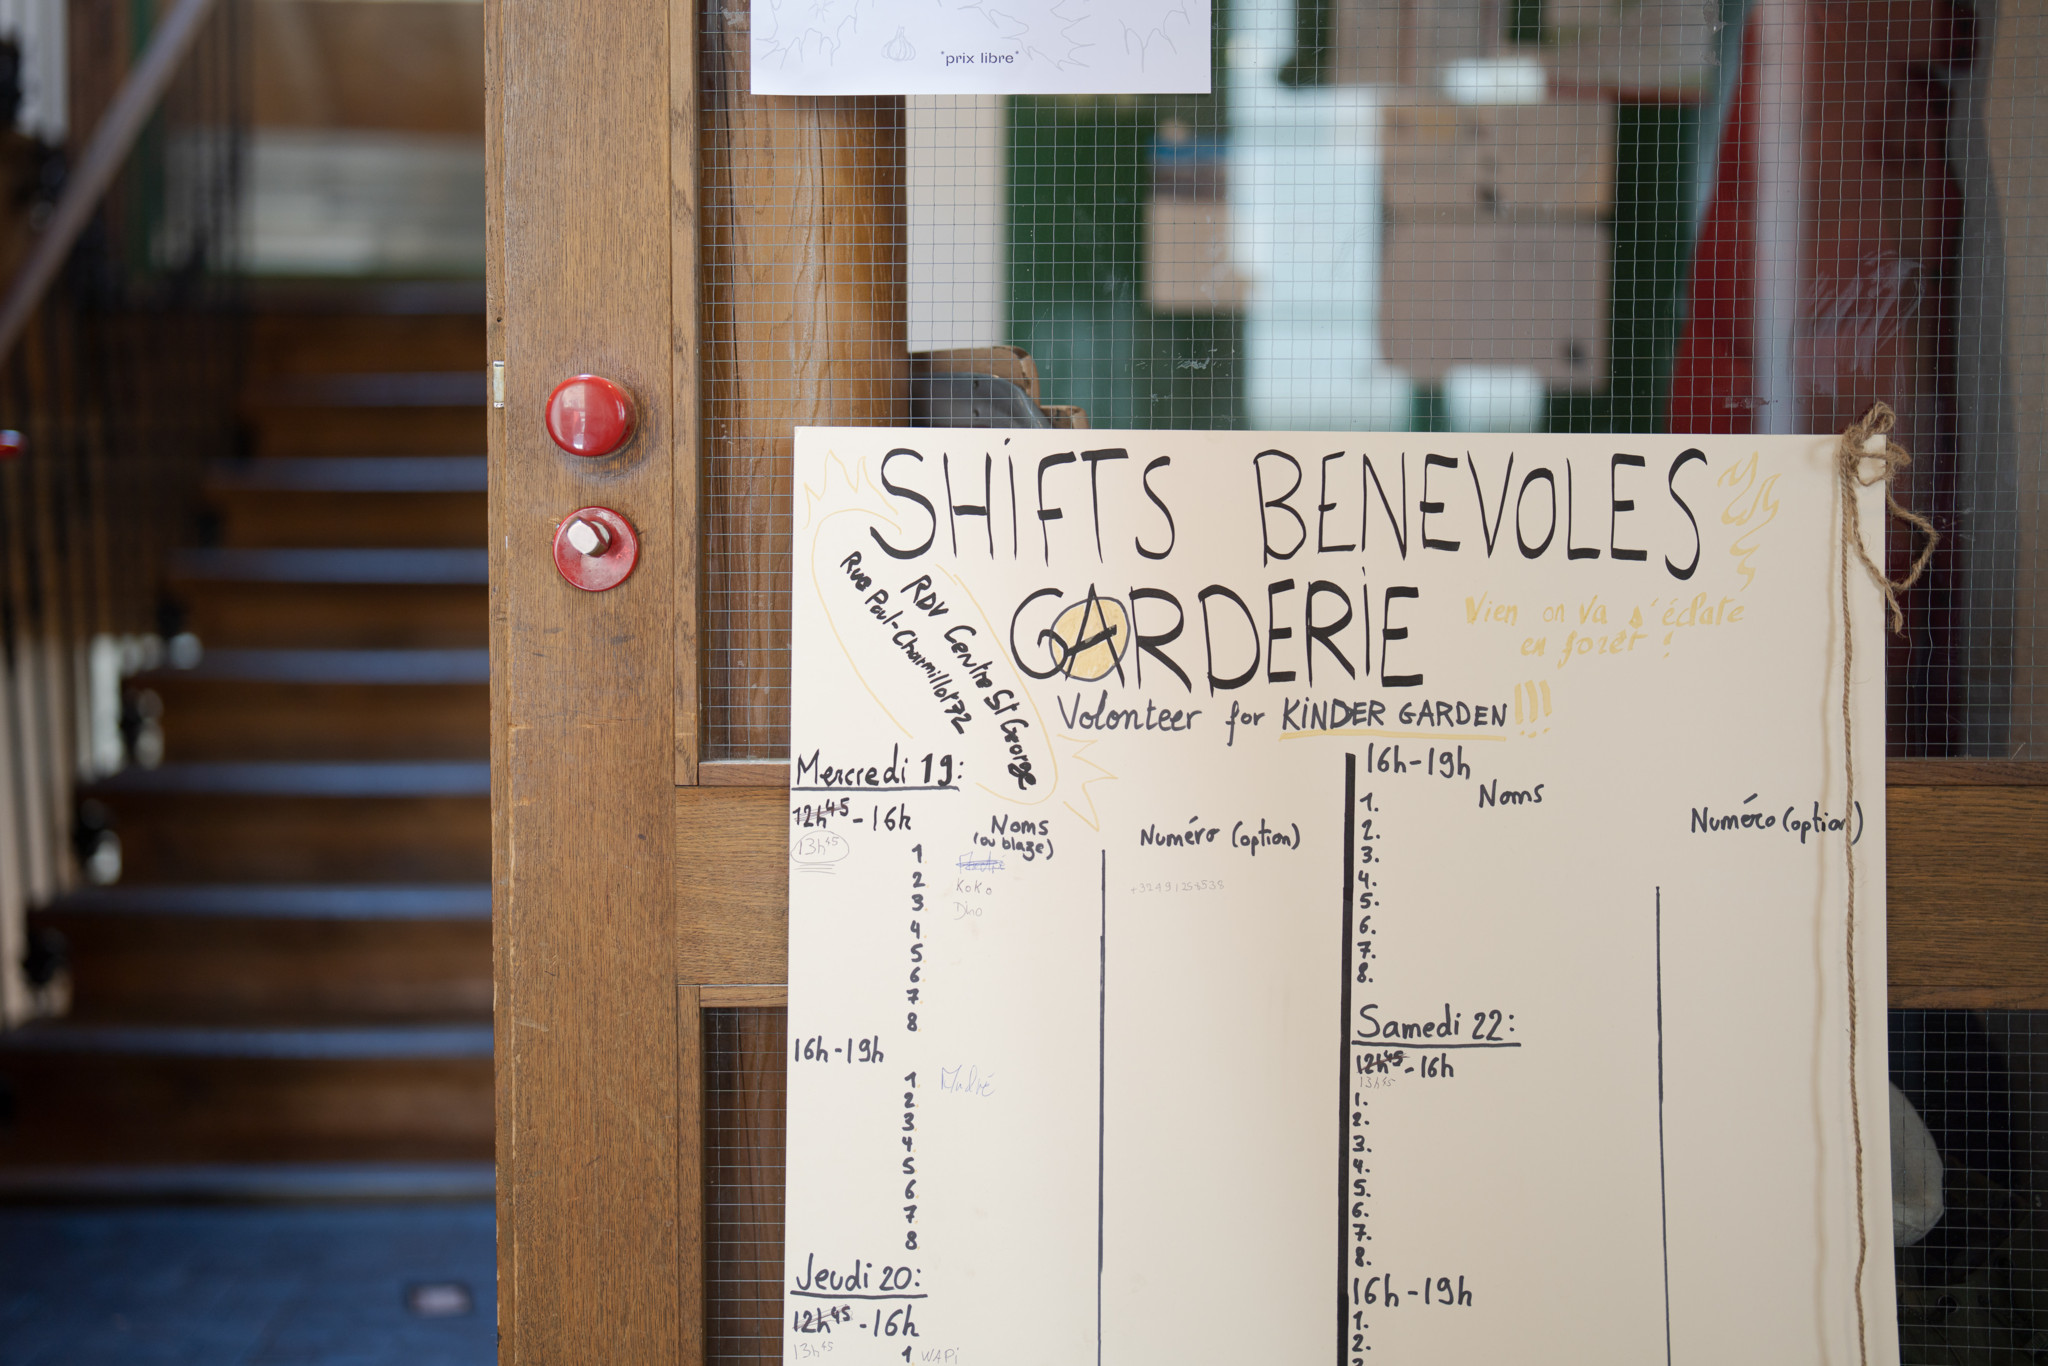 *prix libre*
SHIFTS BENEVOLES
GARDERIE
Vien on va s'éclate
en forêt !
RDV Centre St George
Rue Paul-Charmillot 72
Volonteer for KINDER GARDEN !!!
Mercredi 19:
12h45 - 16h
13h45
Noms
(ou blaze)
Numéro (option)
1
2 Koko +32491258538
3 Dino
4
5
6
7
8
16h-19h
1
2
3
4
5
6
7
8
Jeudi 20:
12h45 - 16h
13h45
1 WAPi
16h-19h
Noms
Numéro (option)
1.
2.
3.
4.
5.
6.
7.
8.
Samedi 22:
12h45 - 16h
13h45
1.
2.
3.
4.
5.
6.
7.
8.
16h-19h
1.
2.